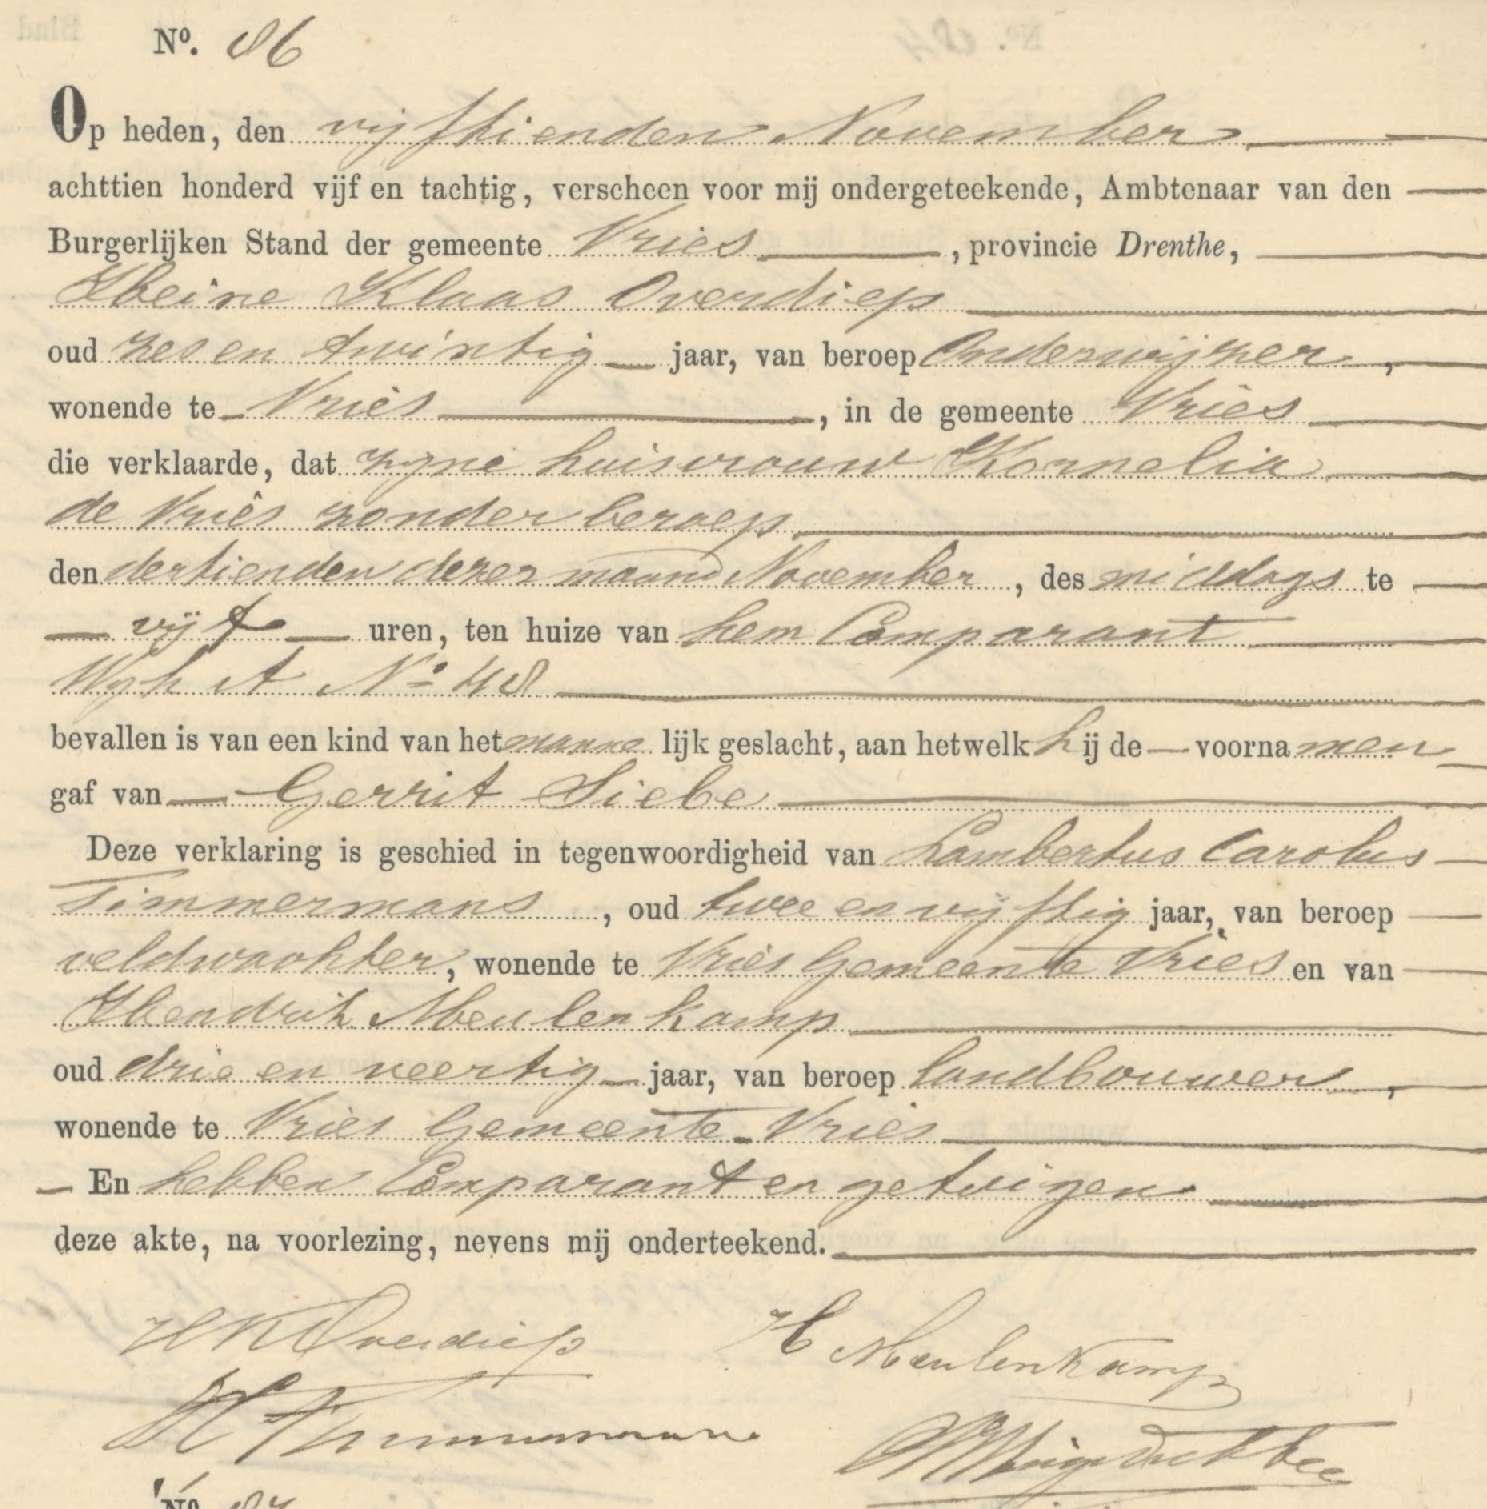 No. 86
Op heden, den vijftienden November
achttien honderd vijf en tachtig, verscheen voor mij ondergeteekende, Ambtenaar van den
Burgerlijken Stand der gemeente Vries, provincie Drenthe,
Heine Klaas Overdiep
oud zes en twintig jaar, van beroep Onderwijzer,
wonende te Vries, in de gemeente Vries
die verklaarde, dat zijne huisvrouw Kornelia
de Vries zonder beroep
den dertienden dezer maand November, des middags te
vijf uren, ten huize van hem Comparant
Wijk A No 48
bevallen is van een kind van het manne lijk geslacht, aan hetwelk hij de voornamen
gaf van Gerrit Siebe
Deze verklaring is geschied in tegenwoordigheid van Lambertus Carolus
Timmermans, oud twee en vijftig jaar, van beroep
veldwachter, wonende te Vries Gemeente Vries en van
Hendrik Meulenkamp
oud drie en veertig jaar, van beroep landbouwer,
wonende te Vries Gemeente Vries
En hebben Comparant en getuigen
deze akte, na voorlezing, nevens mij onderteekend.
HK Overdiep
H Meulenkamp
Timmermans
No 87